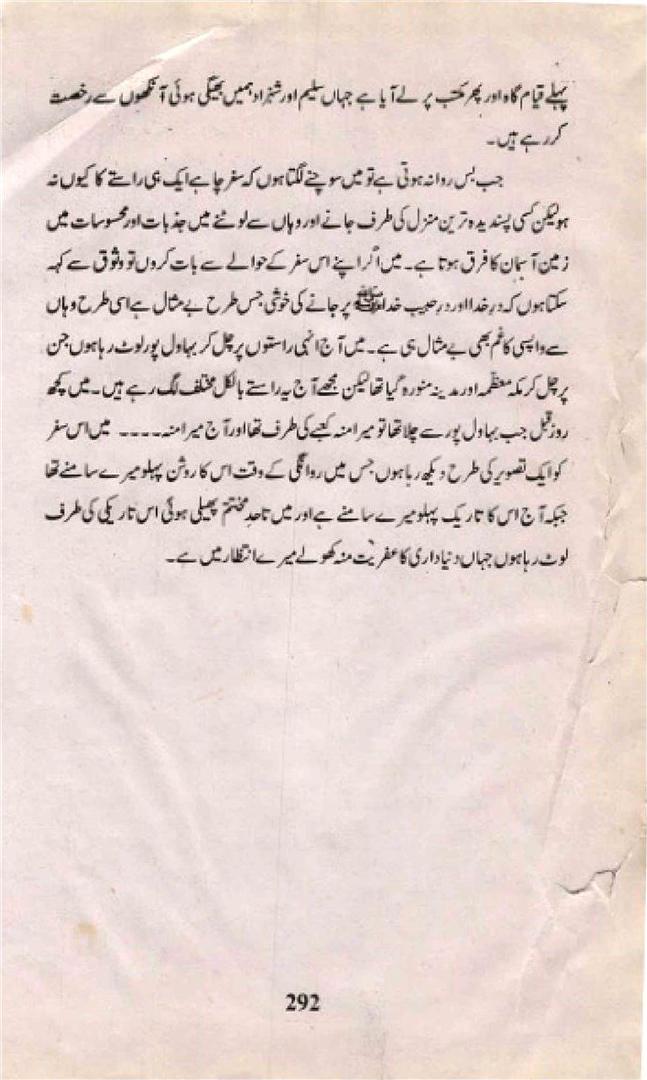 پہلے قیام گاہ اور پھر مکتب پر لے آیا ہے جہاں سلیم اور شہزاد ہمیں بھیگی ہوئی آنکھوں سے رخصت
کر رہے ہیں۔
جب بس روانہ ہوتی ہے تو میں سوچنے لگتا ہوں کہ سفر چاہے ایک ہی راستے کا کیوں نہ
ہو لیکن کسی پسندیدہ ترین منزل کی طرف جانے اور وہاں سے لوٹنے میں جذبات اور محسوسات میں
زمین آسمان کا فرق ہوتا ہے۔ میں اگر اپنے اس سفر کے حوالے سے بات کروں تو وثوق سے کہہ
سکتا ہوں کہ درِ خدا اور درِ حبیب خدا ﷺ پر جانے کی خوشی جس طرح بے مثال ہے اسی طرح وہاں
سے واپسی کا غم بھی بے مثال ہی ہے۔ میں آج انہی راستوں پر چل کر بہاول پور لوٹ رہا ہوں جن
پر چل کر مکہ معظمہ اور مدینہ منورہ گیا تھا لیکن مجھے آج یہ راستے بالکل مختلف لگ رہے ہیں۔ میں کچھ
روز قبل جب بہاول پور سے چلا تھا تو میرا منہ کعبے کی طرف تھا اور آج میرا منہ ۔۔۔۔ میں اس سفر
کو ایک تصویر کی طرح دیکھ رہا ہوں جس میں روانگی کے وقت اس کا روشن پہلو میرے سامنے تھا
جبکہ آج اس کا تاریک پہلو میرے سامنے ہے اور میں تاحدِ مختتم پھیلی ہوئی اس تاریکی کی طرف
لوٹ رہا ہوں جہاں دنیاداری کا عفریت منہ کھولے میرے انتظار میں ہے۔
292